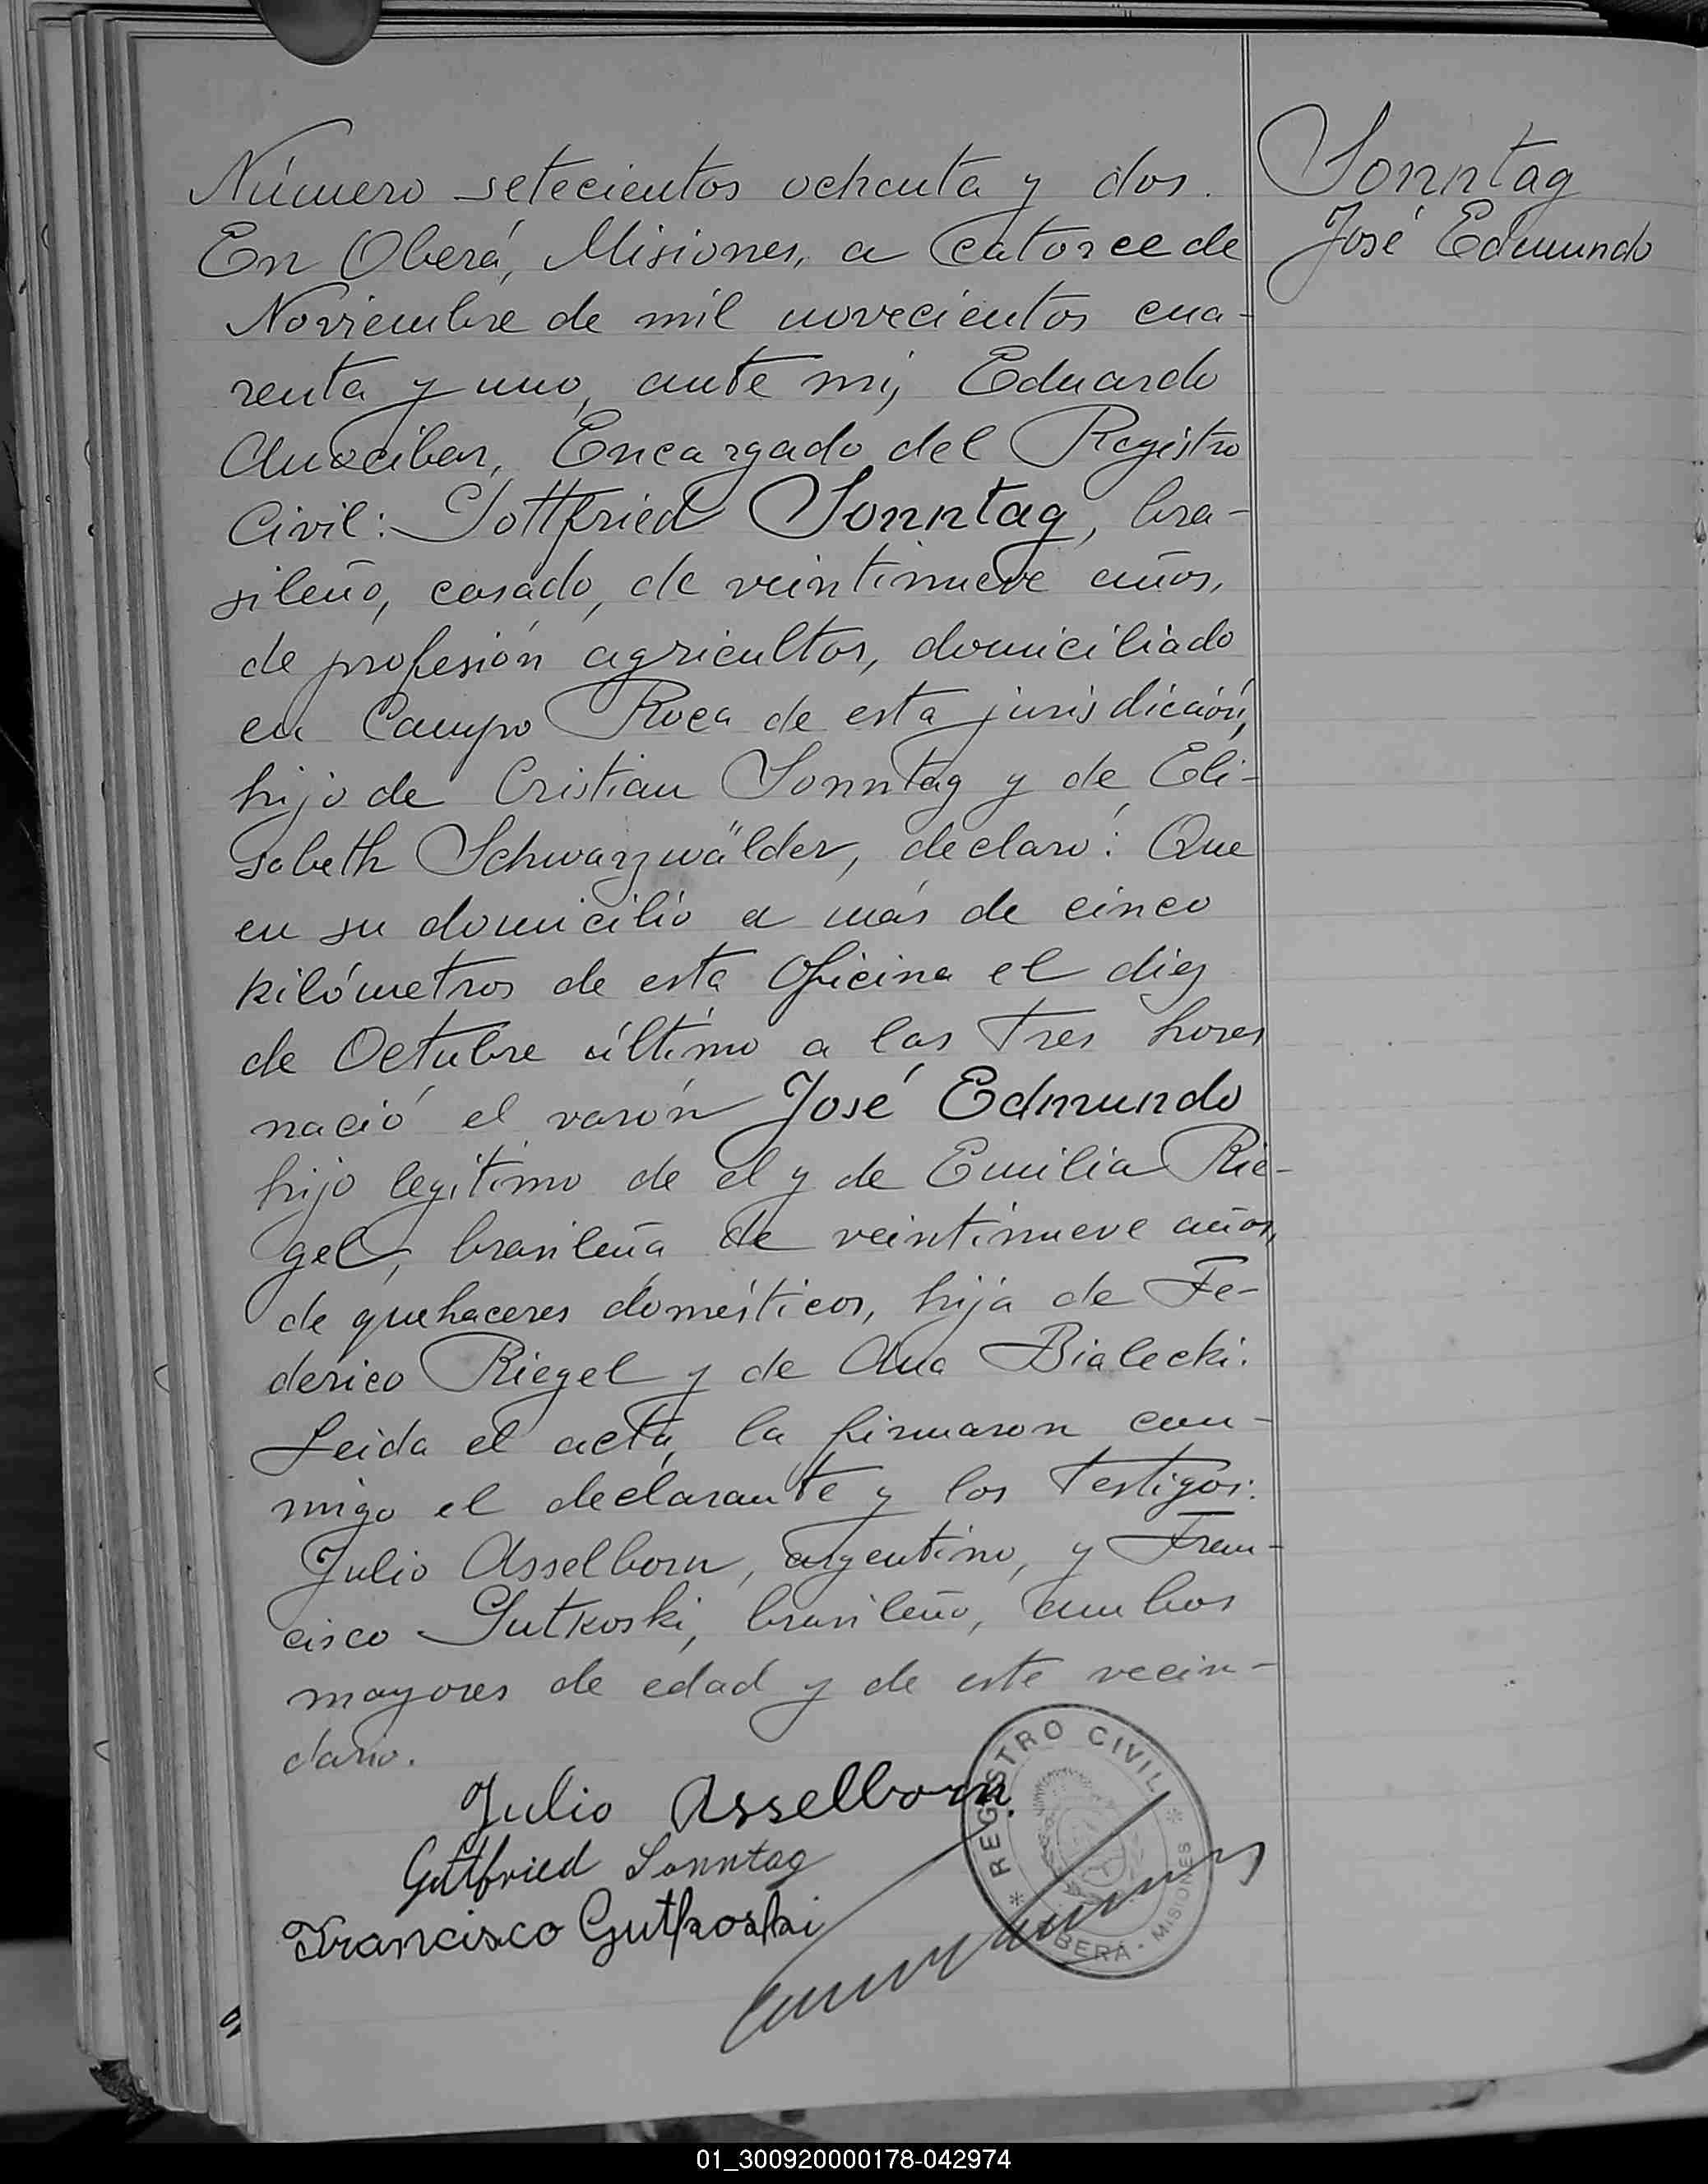 Número setecientos ochenta y dos.
En Oberá, Misiones, a catorce de
Noviembre de mil novecientos cua-
renta y uno, ante mi, Eduardo
Anocibar, Encargado del Registro
Civil: Gottfried Sonntag, bra-
sileño, casado, de veintinueve años,
de profesión agricultor, domiciliado
en Campo Roca de esta jurisdicción,
hijo de Cristian Sonntag y de Eli-
sabeth Schwarzwälder, declaró: Que
en su domicilio a más de cinco
kilómetros de esta Oficina el diez
de Octubre último a las tres horas
nació el varón José Edmundo
hijo legítimo de el y de Emilia Rie-
gel, brasileña de veintinueve años,
de quehaceres domésticos, hija de Fe-
derico Riegel y de Ana Bialecki.
Leida el acta, la firmaron con-
migo el declarante y los testigos:
Julio Asselborn, argentino, y Fran-
cisco Gutkoski, brasileño, ambos
mayores de edad y de este vecin-
dario.
Sonntag
José Edmundo
Julio Asselborn
Gottfried Sonntag
Francisco Gutkoski
REGISTRO CIVIL
OBERÁ - MISIONES
01_300920000178-042974